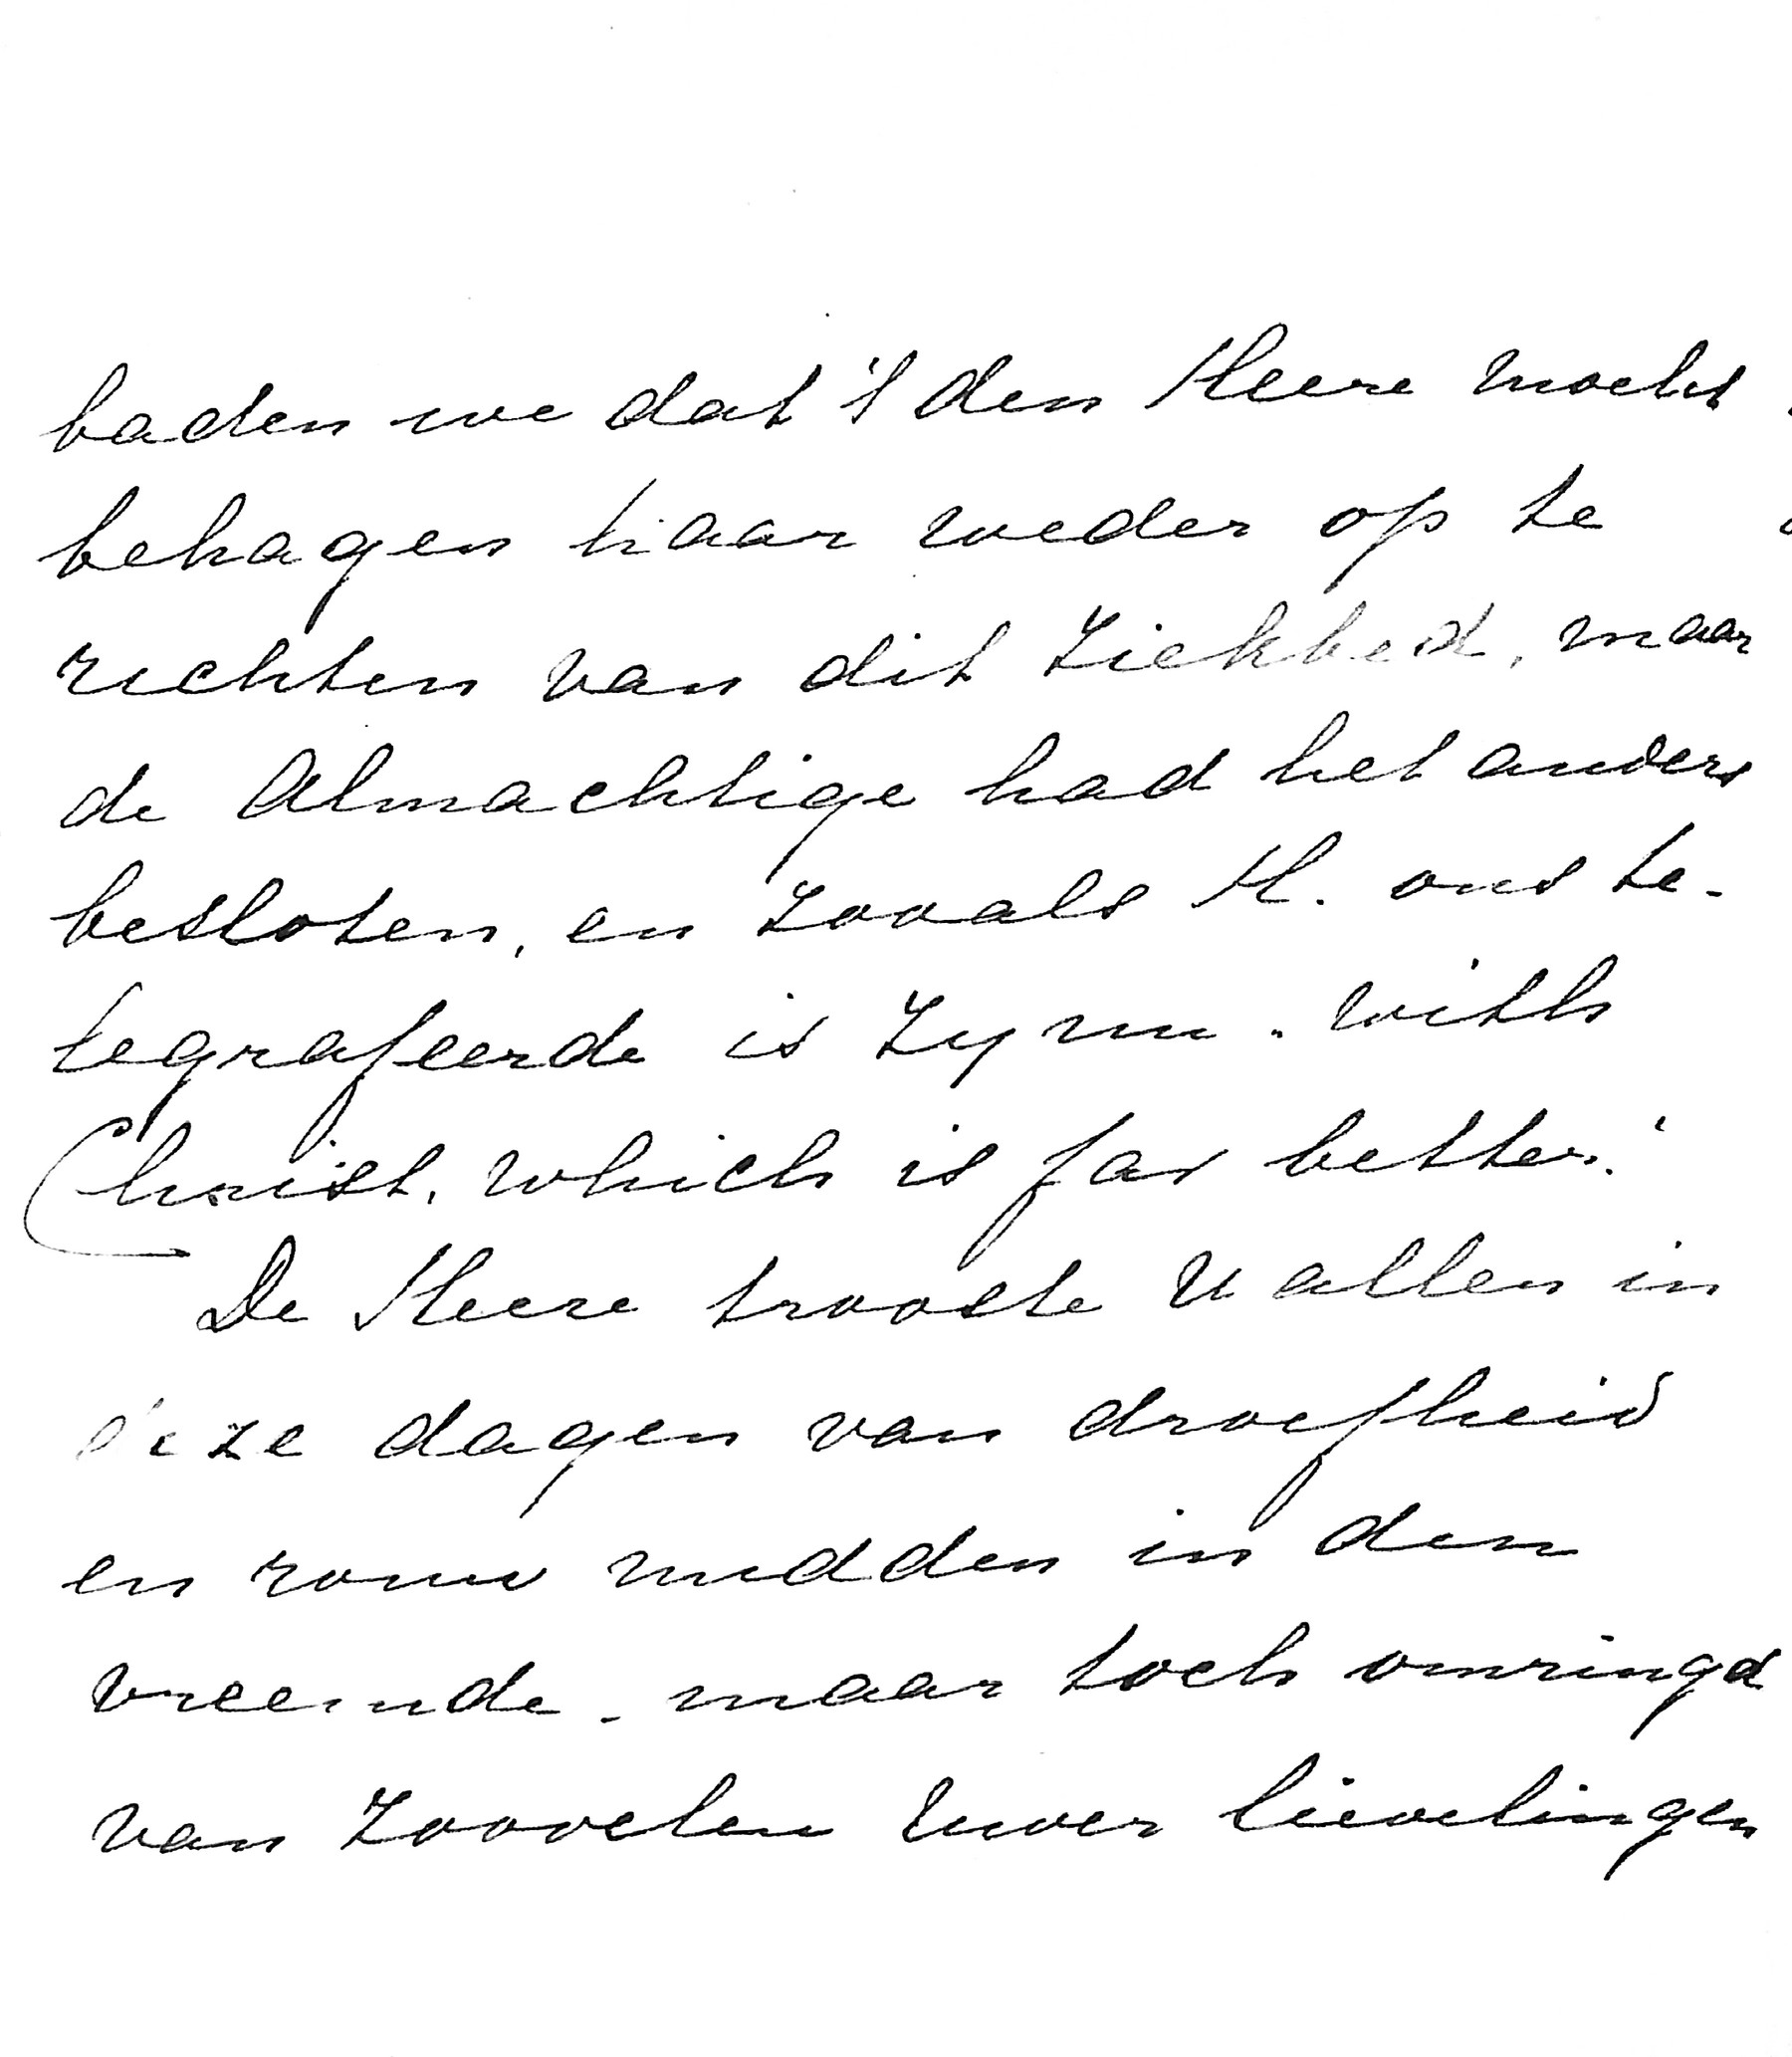 baden we dat 't den Heere mocht
behagen haar weder op te
richten van dit ziekbed, maar
de Almachtige had het anders
besloten, en zooals H. ons te-
legrafeerde is zy nu "with
Christ, which is far better."
De Heere trooste U allen in
deze dagen van droefheid
en rouw midden in den
vreemde - maar toch omringd
van zoovelen Uwer lievelingen